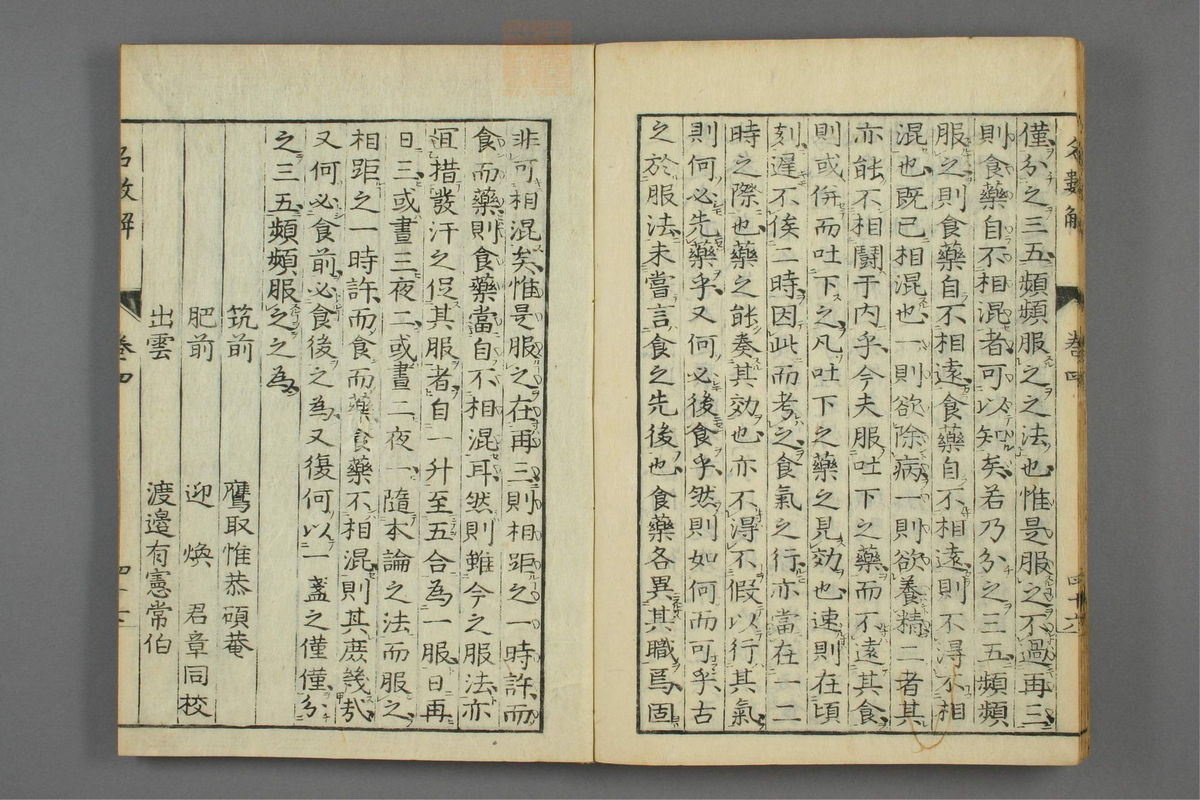 名數解　卷四
僅分之三五頻頻服之之法也惟是服之不過再三
則食藥自不相混者可以知矣若乃分之三五頻頻
服之則食藥自不相遠食藥自不相遠則不得不相
混也既已相混也一則欲除病一則欲養精二者其
亦能不相鬪于内乎今夫服吐下之藥而不遠其食
則或併而吐下之凡吐下之藥之見効也速則在頃
刻遲不俟二時因此而考之食氣之行亦當在一二
時之際也藥之能奏其効也亦不得不假以行其氣
則何必先藥乎又何必後食乎然則如何而可乎古
之於服法未嘗言食之先後也食藥各異其職焉固
非可相混矣惟是服之在再三則相距之一時許而
食而藥則食藥當自不相混耳然則雖今之服法亦
宜措發汗之促其服者自一升至五合為一服日再
日三或晝三夜二或晝二夜一隨本論之法而服之
相距之一時許而食而藥食藥不相混則其庶幾哉
又何必食前必食後之為又復何以一盞之僅僅分
之三五頻頻服之之為
筑前　鷹取惟恭碩菴
肥前　迎　煥　君章同校
出雲　渡邉有憲常伯
名數解　卷四